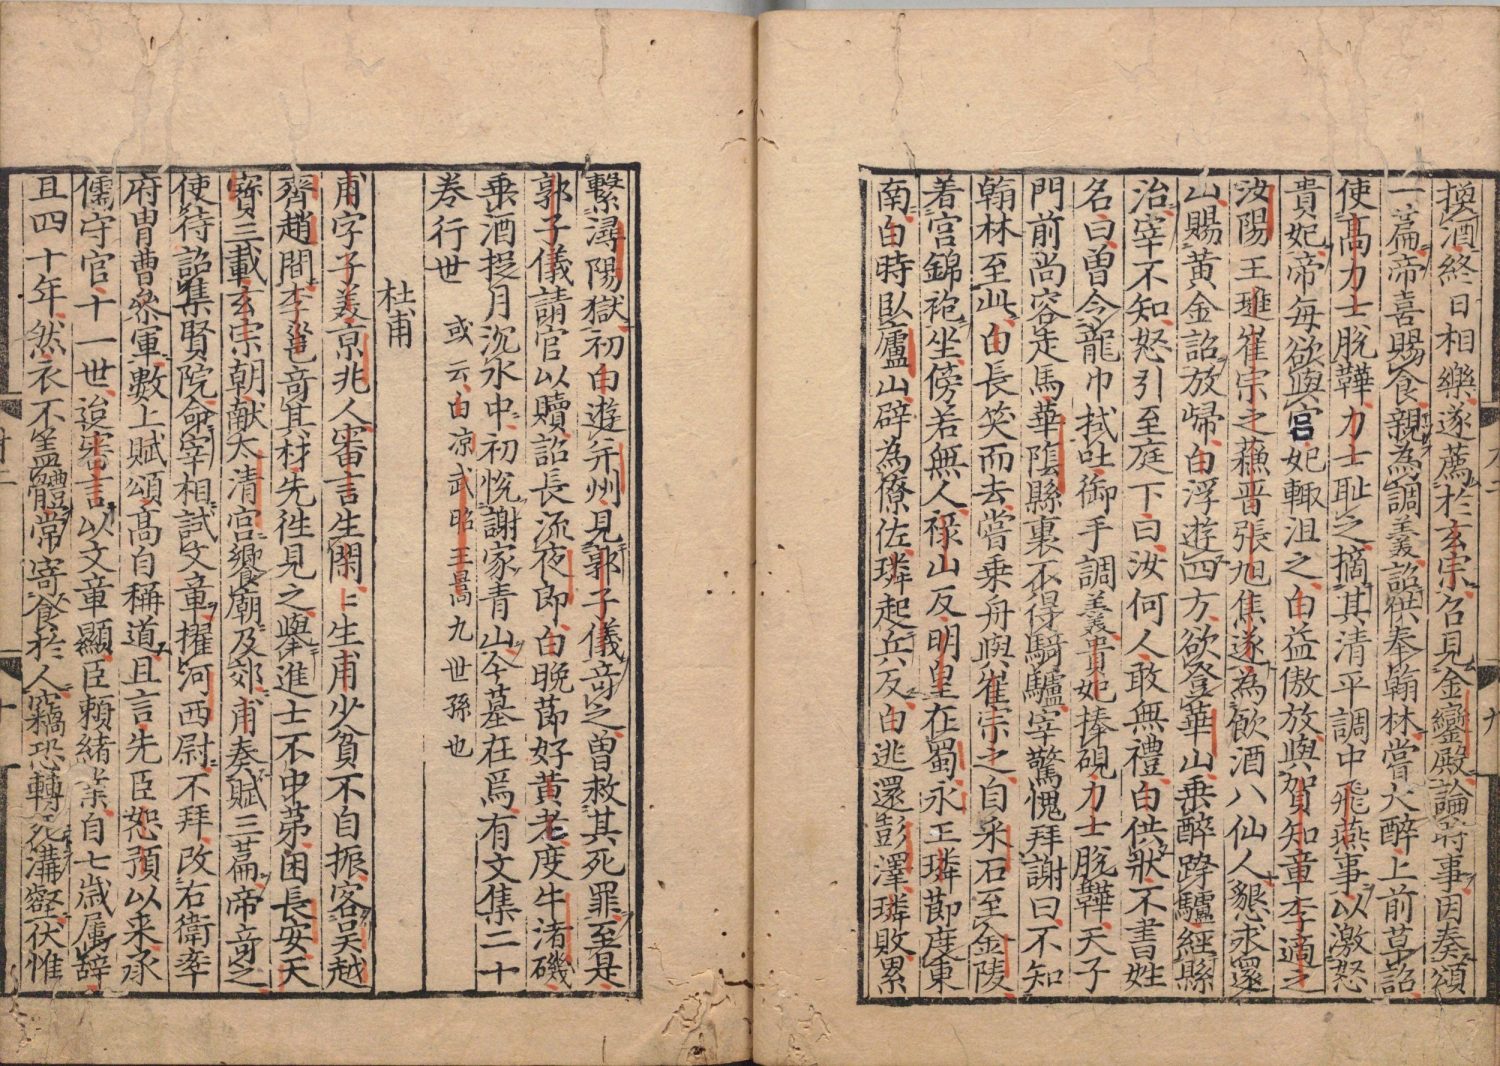 換酒終日相樂遂薦於玄宗召見金鑾殿論時事因奏頌
一篇帝喜賜食親為調羹詔供奉翰林嘗大醉上前草詔
使高力士脫鞾力士耻之摘其清平調中飛燕事以激怒
貴妃帝每欲與官妃輙沮之白益傲放與賀知章李適之
汝陽王璡崔宗之蘓晋張旭焦遂為飲酒八仙人懇求還
山賜黃金詔放歸白浮遊四方欲登華山乗醉跨驢經縣
治宰不知怒引至庭下曰汝何人敢無禮白供狀不書姓
名曰曽令龍巾拭吐御手調羹貴妃捧硯力士脫鞾天子
門前尚容走馬華隂縣裏不得騎驢宰驚愧拜謝曰不知
翰林至此白長笑而去嘗乗舟與崔宗之自采石至金陵
着宮錦袍坐傍若無人禄山反明皇在蜀永王璘節度東
南白時卧廬山辟為僚佐璘起兵反白逃還彭澤璘敗累
繫潯陽獄初白遊并州見郭子儀竒之曽救其死罪至是
郭子儀請官以贖詔長流夜郎白晚節好黃老度牛渚磯
乗酒捉月沉水中初悅謝家青山今墓在焉有文集二十
巻行世 或云白凉武昭王暠九世孫也
杜甫
甫字子美京兆人審言生閑〻生甫少貧不自振客吴越
齊趙間李邕竒其材先徃見之舉進士不中第困長安天
寳三載玄宗朝献太清宫饗廟及郊甫奏賦三篇帝竒之
使待詔集賢院命宰相試文章擢河西尉不拜改右衛率
府胄曹叅軍數上賦頌高自稱道且言先臣恕預以来承
儒守官十一世迨審言以文章顯臣賴緒業自七歲属辞
且四十年然衣不盖體常寄食於人竊恐轉死溝壑伏惟